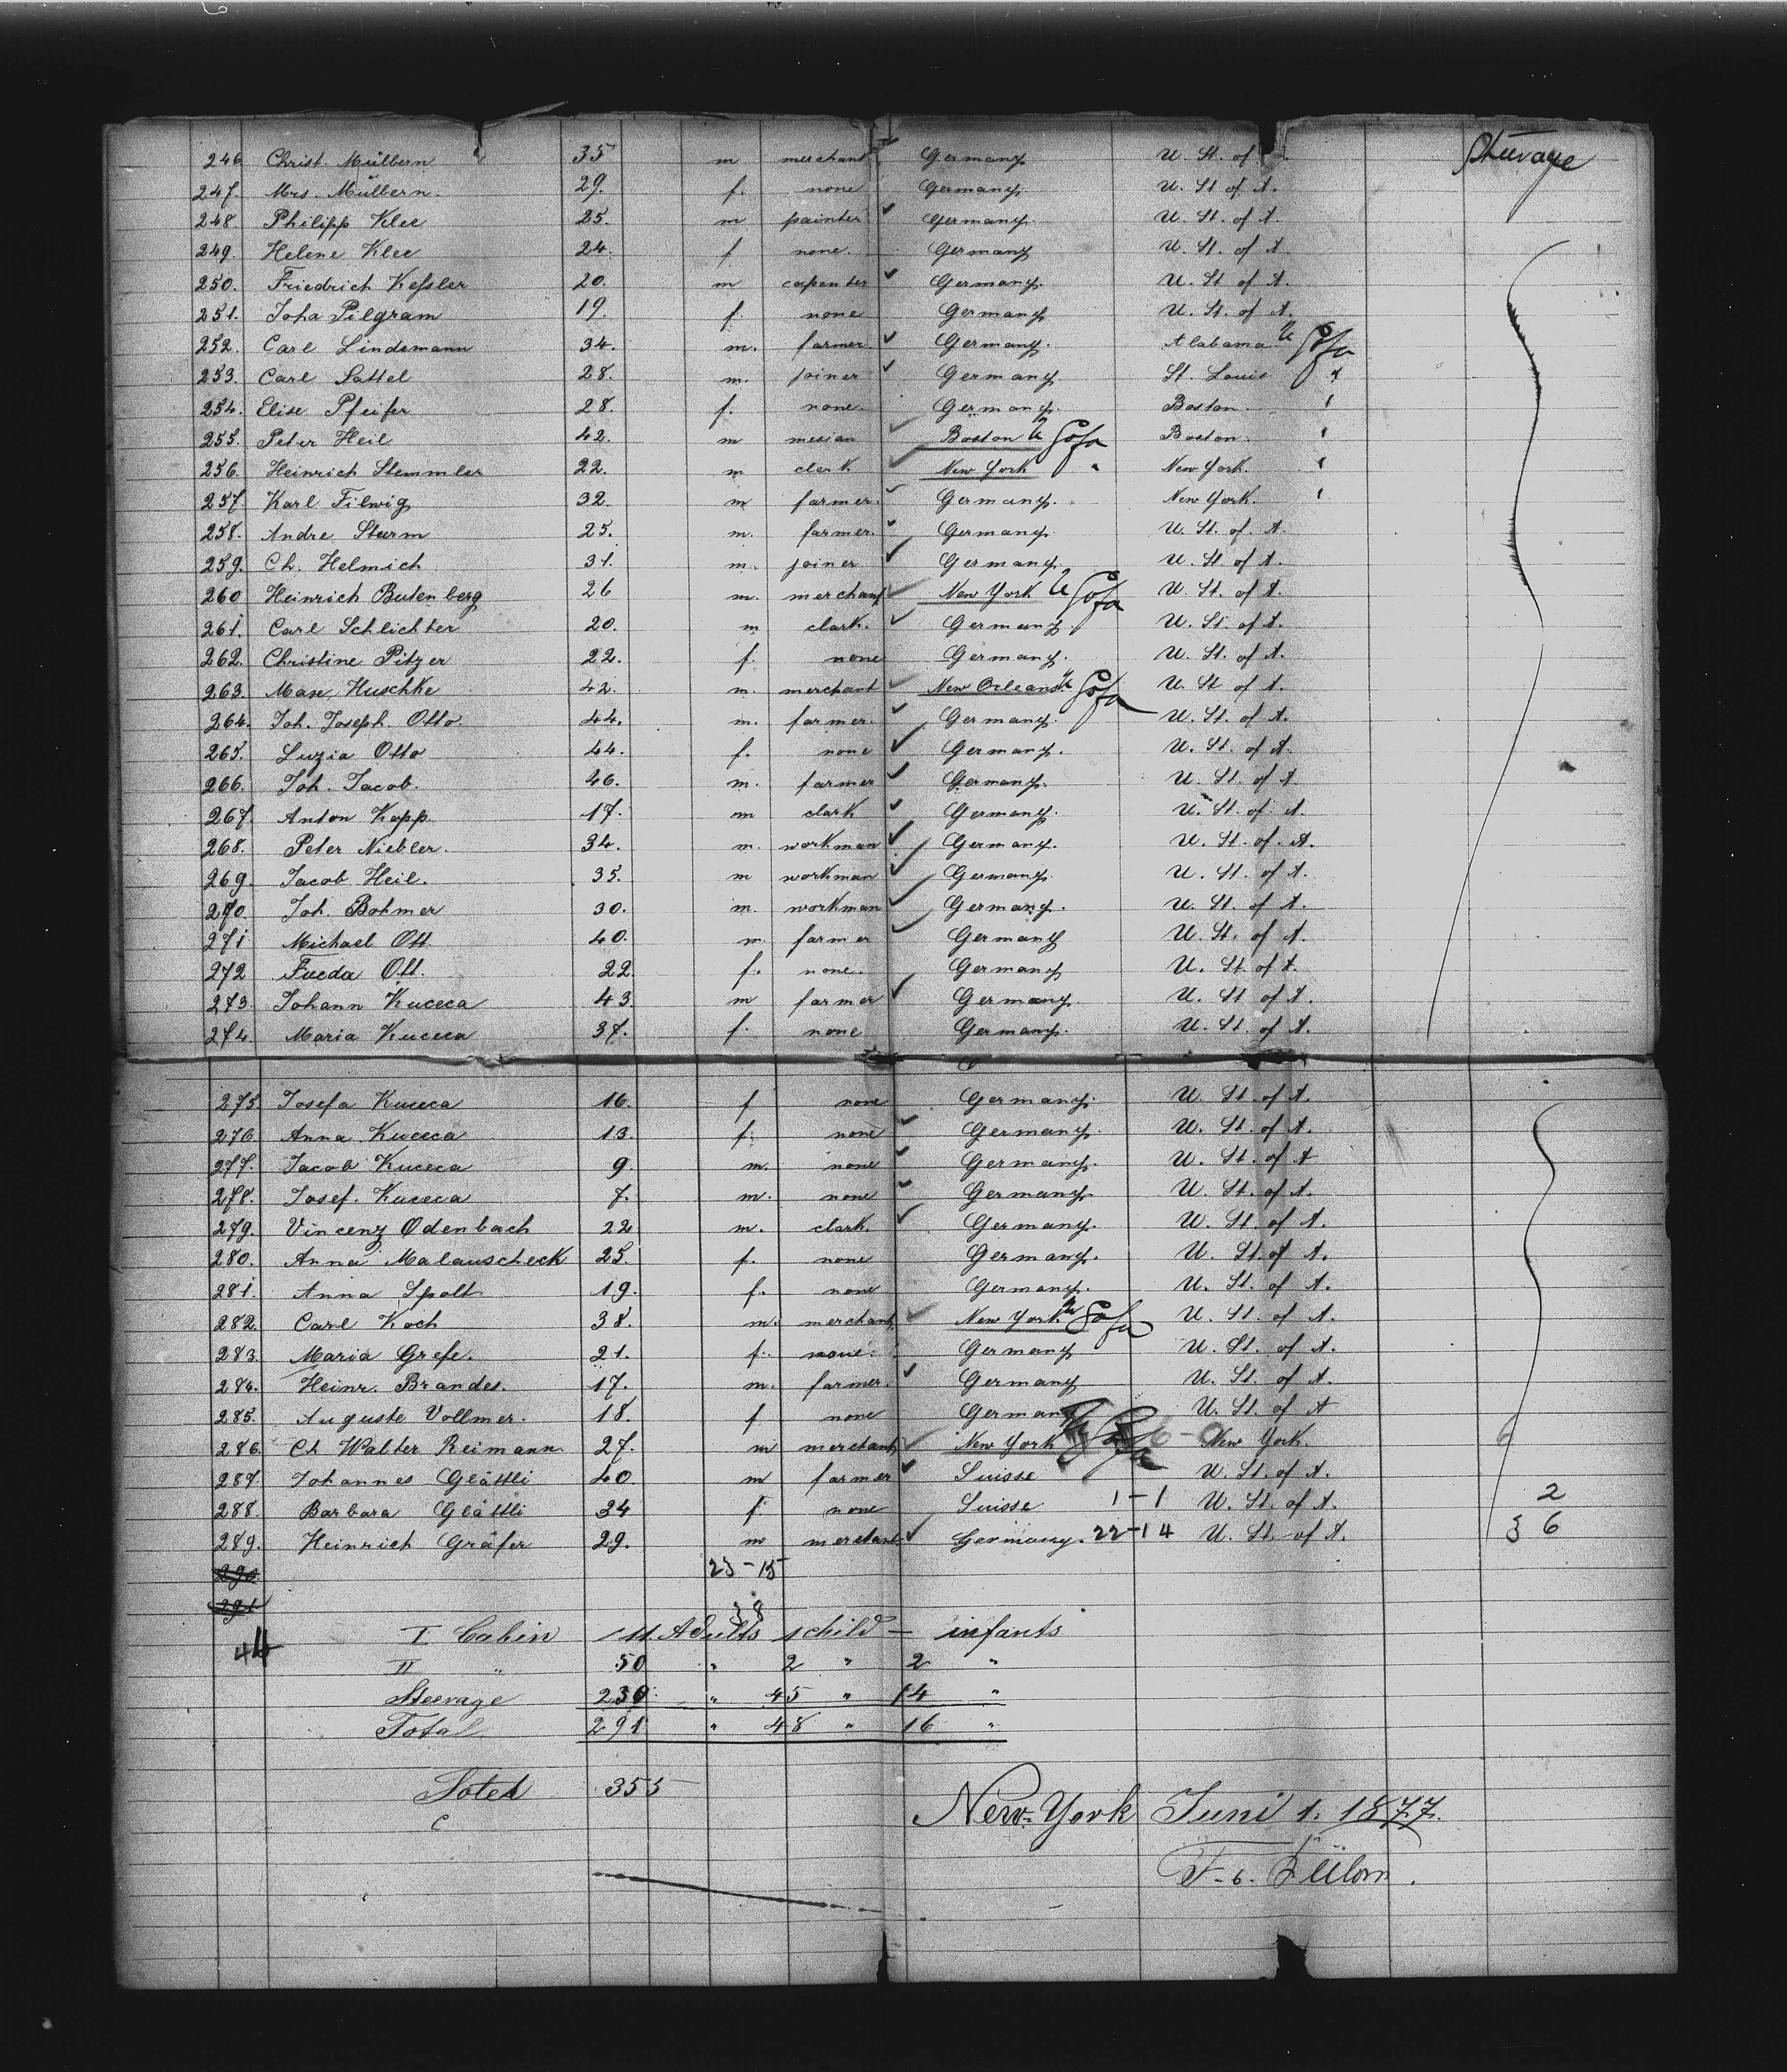 Steerage
246 Christ. Mülbern 35 m merchant Germany U. St. of
247. Mrs. Mülbern. 29. f. none Germany. U. St. of A.
248 Philipp Klee 25. m painter Germany. U. St. of A.
249. Helene Klee 24. f none. Germany U. St. of A.
250. Friedrich Keſsler 20. m capenter Germany. U. St. of A.
251. Joha Pilgram 19. f. none Germany U. St. of A.
252. Carl Lindemann 34. m. farmer Germany. Alabama U S of a
253. Carl Sattel 28. m. joiner Germany St. Louis "
254. Elise Pfeifer 28. f. none. Germany. Boston. "
255. Peter Heil 42. m mesian Boston U S of a Boston. "
256. Heinrich Stemmler 22. m clerk New York " New York. "
257. Karl Filwig 32. m farmer. Germany. New York. "
258. Andre Sturm 25. m. farmer. Germany. U. St. of. A.
259. Ch. Helmich 31. m. joiner Germany. U. St. of A.
260 Heinrich Butenberg 26 m. merchant New York U S of a U. St. of A.
261. Carl Schlichter 20. m clark. Germany. U. St. of A.
262. Christine Pitzer 22. f. none Germany. U. St. of A.
263. Max Huschke 42. m. merchant New Orleans U S of a U. St. of A.
264. Joh. Joseph. Otto. 44. m. farmer. Germany. U. St. of A.
265. Luzia Otto 44. f. none Germany. U. St. of A.
266. Joh. Jacob. 46. m. farmer Germany. U. St. of A.
267. Anton Kopp. 17. m clark Germany. U. St. of A.
268. Peter Niebler. 34. m. workman Germany. U. St. of. A.
269. Jacob Heil. 35. m workman Germany. U. St. of A.
270. Joh. Bohmer 30. m. workman Germany. U. St. of A.
271 Michael Ott 40. m. farmer Germany U. St. of A.
272 Ott. 22. f. none. Germany U. St. of A.
273. Johann Kuceca 43. m farmer Germany. U. St. of A.
274. Maria Kuceca 37. f. none Germany. U. St. of A.
275. Josefa Kuceca 16. f none Germany. U. St. of A.
276 Anna Kuceca 13. f. none Germany. U. St. of A.
277. Jacob Kuceca 9. m. none Germany. U. St. of A
278. Josef. Kuceca 7. m. none Germany. U. St. of A.
279. Vincenz Odenbach 22 m. clark. Germany. U. St. of A.
280. Anna Malauscheck 25. f. none Germany. U. St. of A.
281. Anna Spolt 19. f. none Germany. U. St. of A.
282. Carl Koch 38. m. merchant New York U S of a U. St. of A.
283. Maria Grefe. 21. f. none. Germany U. St. of A.
284. Heinr. Brandes. 17. m. farmer. Germany U. St. of A.
285. Auguste Vollmer. 18. f none Germany U. St. of A
286. Ch Walter Reimann 27. m merchant New York 6-0 New York. 6
287. Johannes Glättli 40 m farmer Suisse U. St. of A.
288. Barbara Glättli 34 f. none Suisse 1-1 U. St. of A. 2
289. Heinrich Gräfer 29. m merchant Germany. 22-14 U. St. of A. 3 6
290. 23-15
291 38
44 I Cabin 11 Adults 1 child — infants
II " 50 " 2 " 2 "
Steerage 230 " 45 " 14 "
Total 291 " 48 " 16 "
355
New-York Juni 1. 1877.